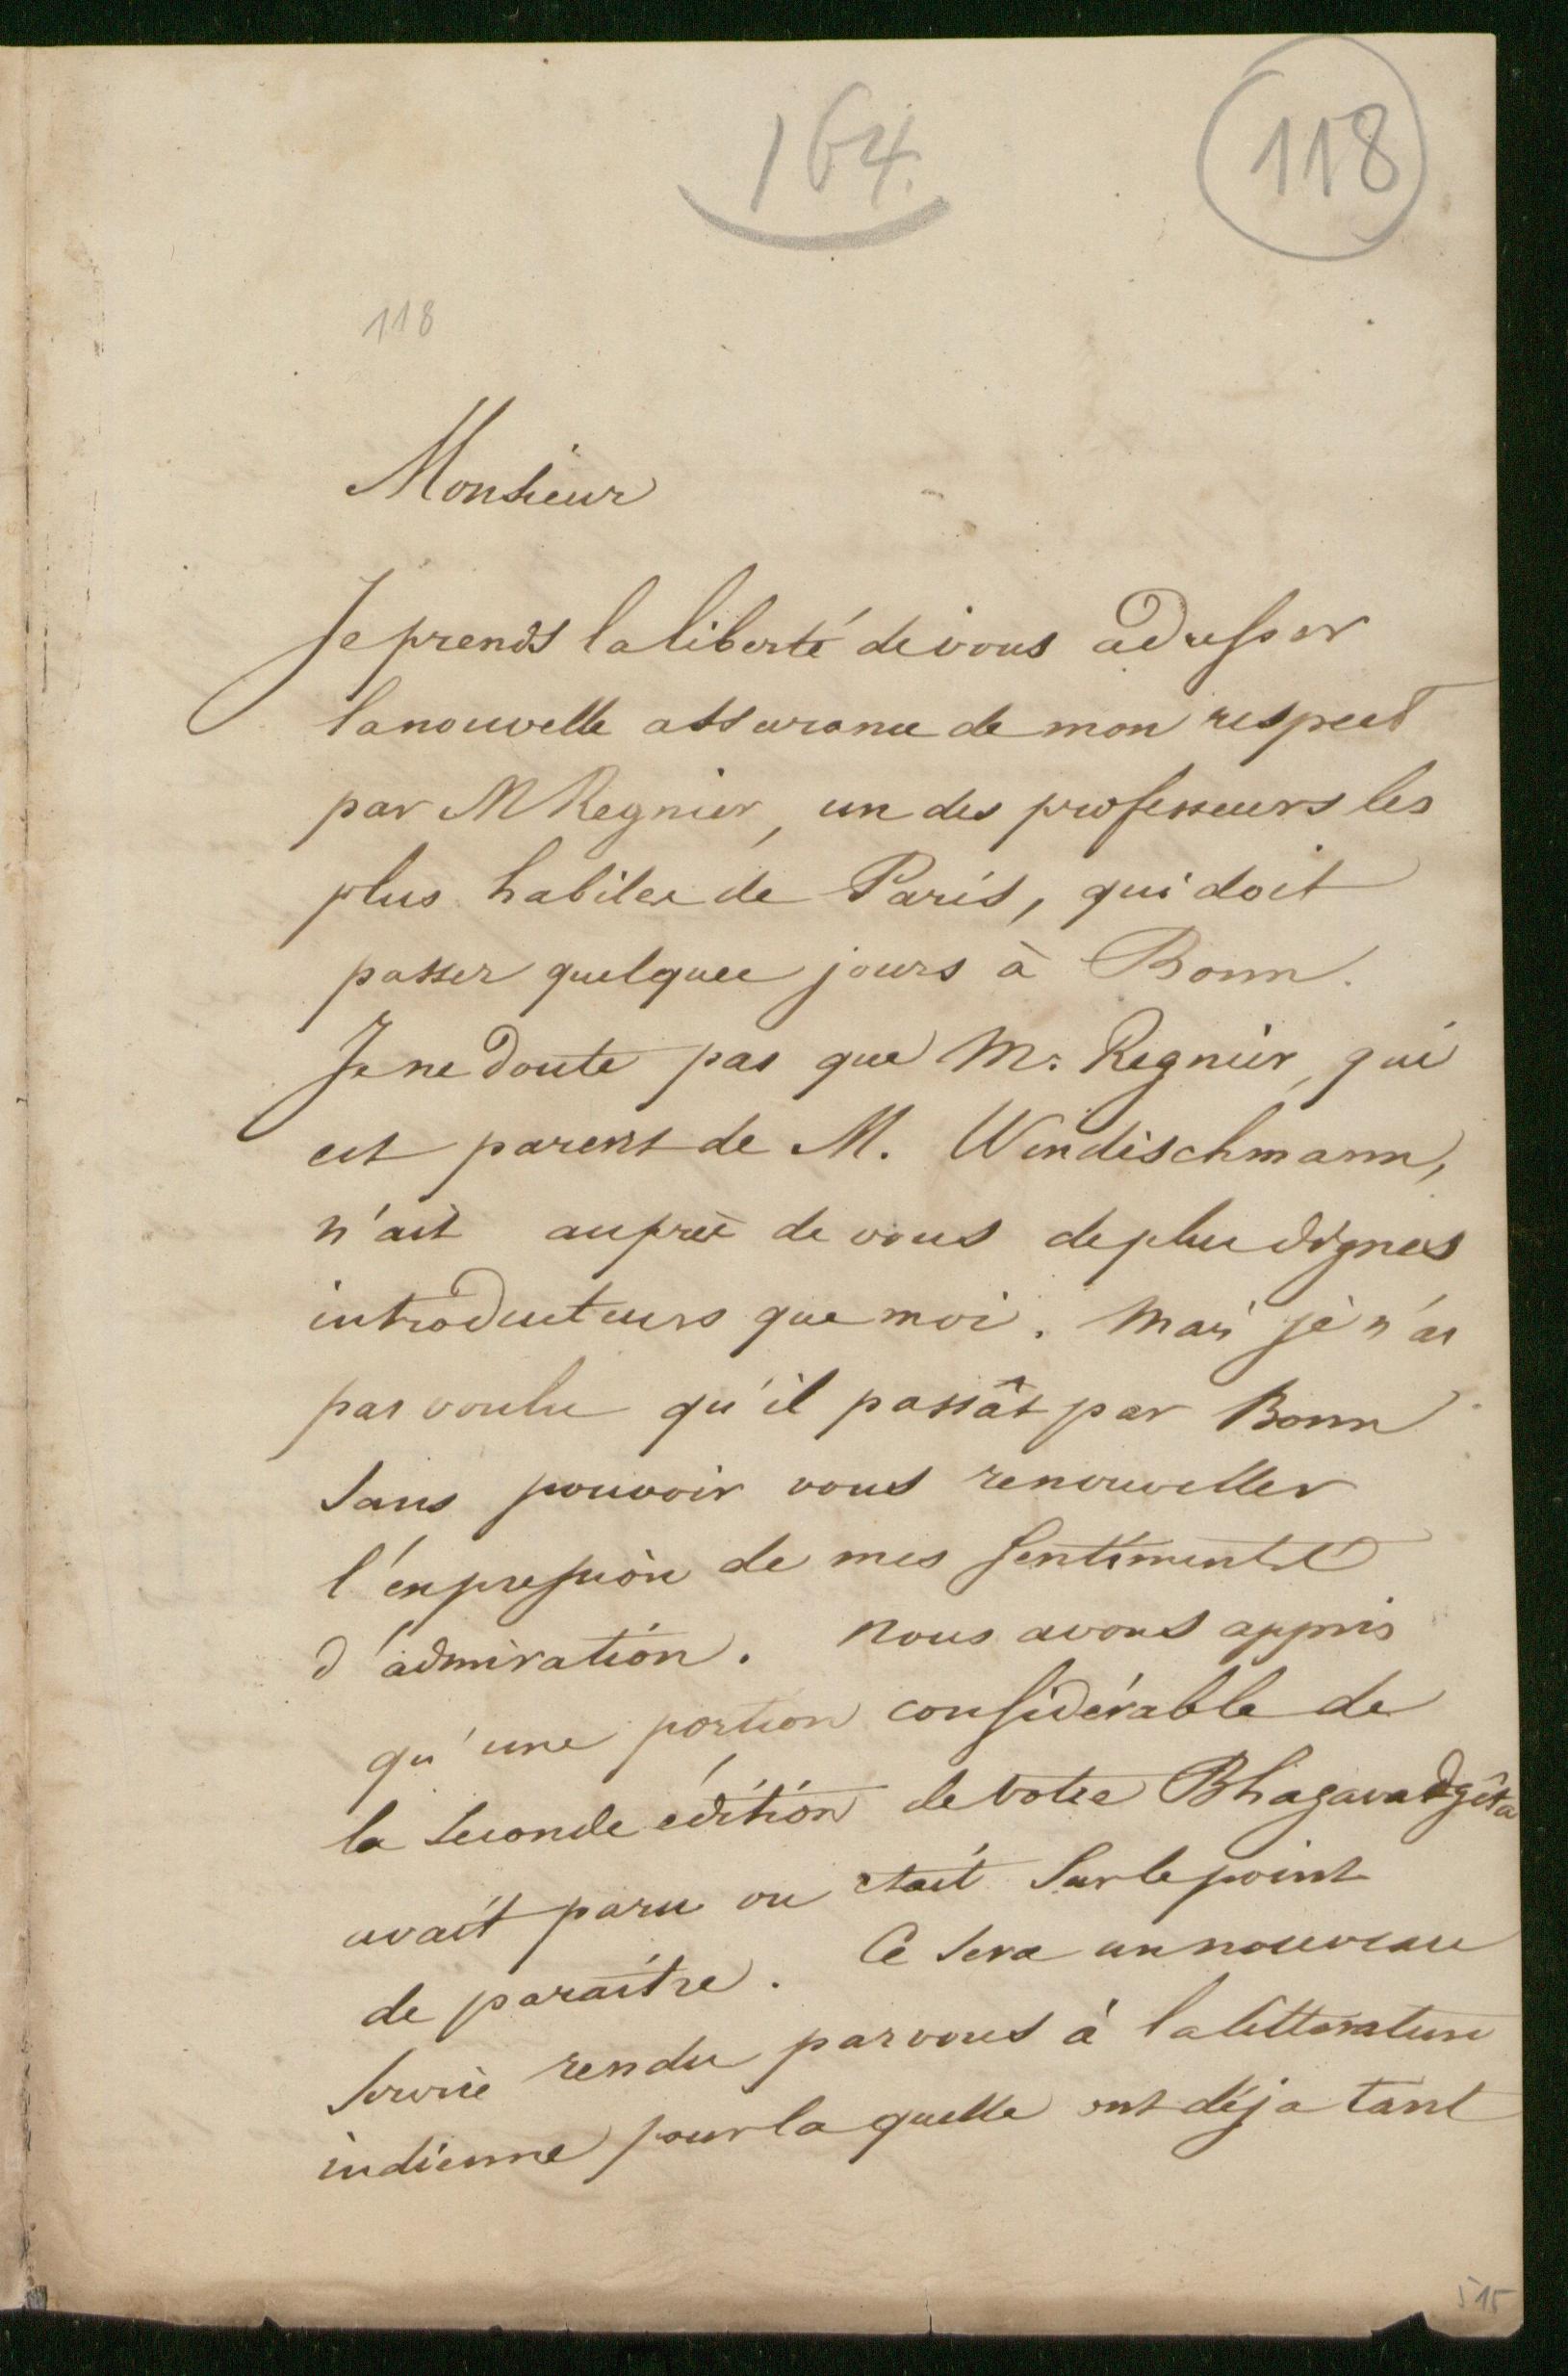 164.
118
118
Monsieur
Je prends la liberté de vous adresser
la nouvelle assurance de mon respect
par M Regnier, un des professeurs les
plus habiles de Paris, qui doit
passer quelques jours à Bonn.
Je ne doute pas que Mr. Regnier, qui
est parent de M. Windischmann,
n'ait auprès de vous de plus dignes
introducteurs que moi. Mais je n'ai
pas voulu qu'il passât par Bonn
sans pouvoir vous renouveller
l'expression de mes sentiments
d'admiration. Nous avons appris
qu'une portion considérable de
la seconde édition de votre Bhagavadgîta
avait paru ou était sur le point
de paraître. Ce sera un nouveau
service rendu par vous à la littérature
indienne pour laquelle ont déja tant
515